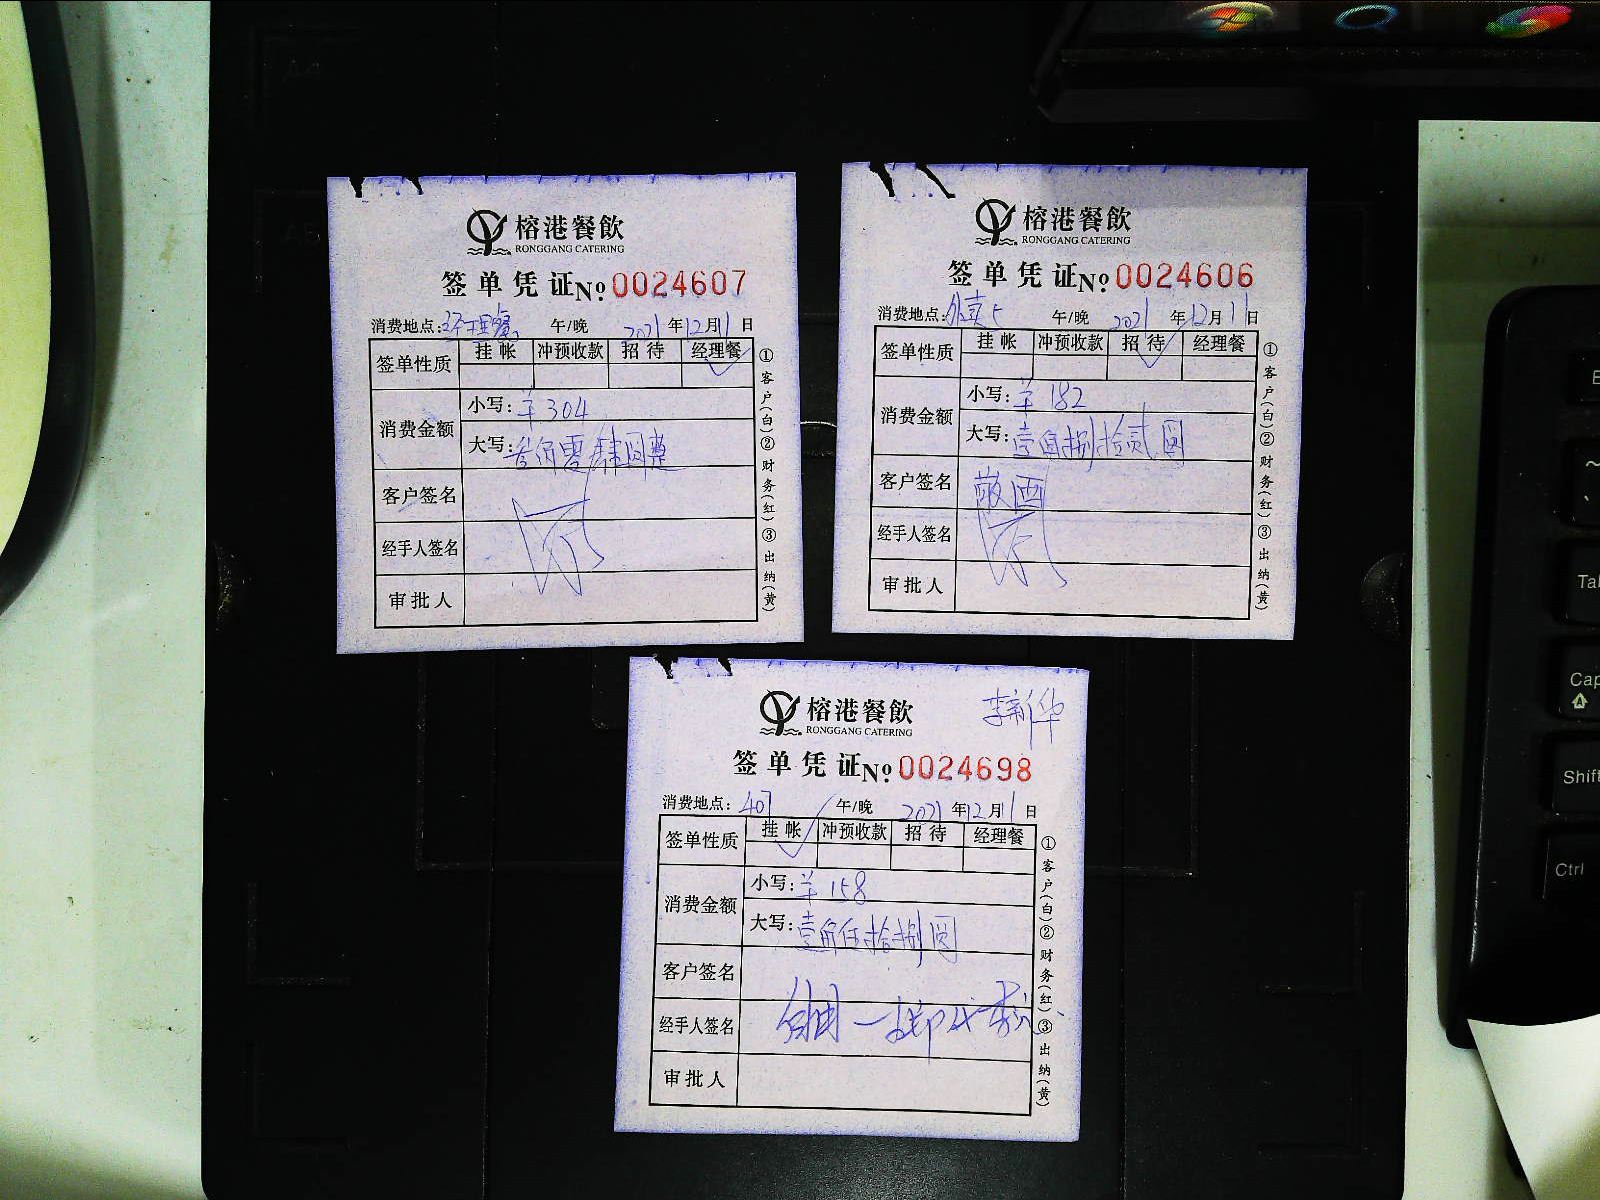 榕港餐飲
RONGGANG CATERING
签单凭证 No 0024607
消费地点: 经理餐 午/晚 2021年12月1日
签单性质 挂帐 冲预收款 招待 经理餐
消费金额 小写: ¥304
大写: 叁佰零肆圆整
客户签名
经手人签名
审批人
①客户(白)②财务(红)③出纳(黄)
榕港餐飲
RONGGANG CATERING
签单凭证 No 0024606
消费地点: 外卖5 午/晚 2021年12月1日
签单性质 挂帐 冲预收款 招待 经理餐
消费金额 小写: ¥182
大写: 壹佰捌拾贰圆
客户签名
经手人签名
审批人
①客户(白)②财务(红)③出纳(黄)
李新华
榕港餐飲
RONGGANG CATERING
签单凭证 No 0024698
消费地点: 407 午/晚 2021年12月1日
签单性质 挂帐 冲预收款 招待 经理餐
消费金额 小写: ¥158
大写: 壹佰伍拾捌圆
客户签名
经手人签名
审批人
①客户(白)②财务(红)③出纳(黄)
Cap
Shift
Ctrl